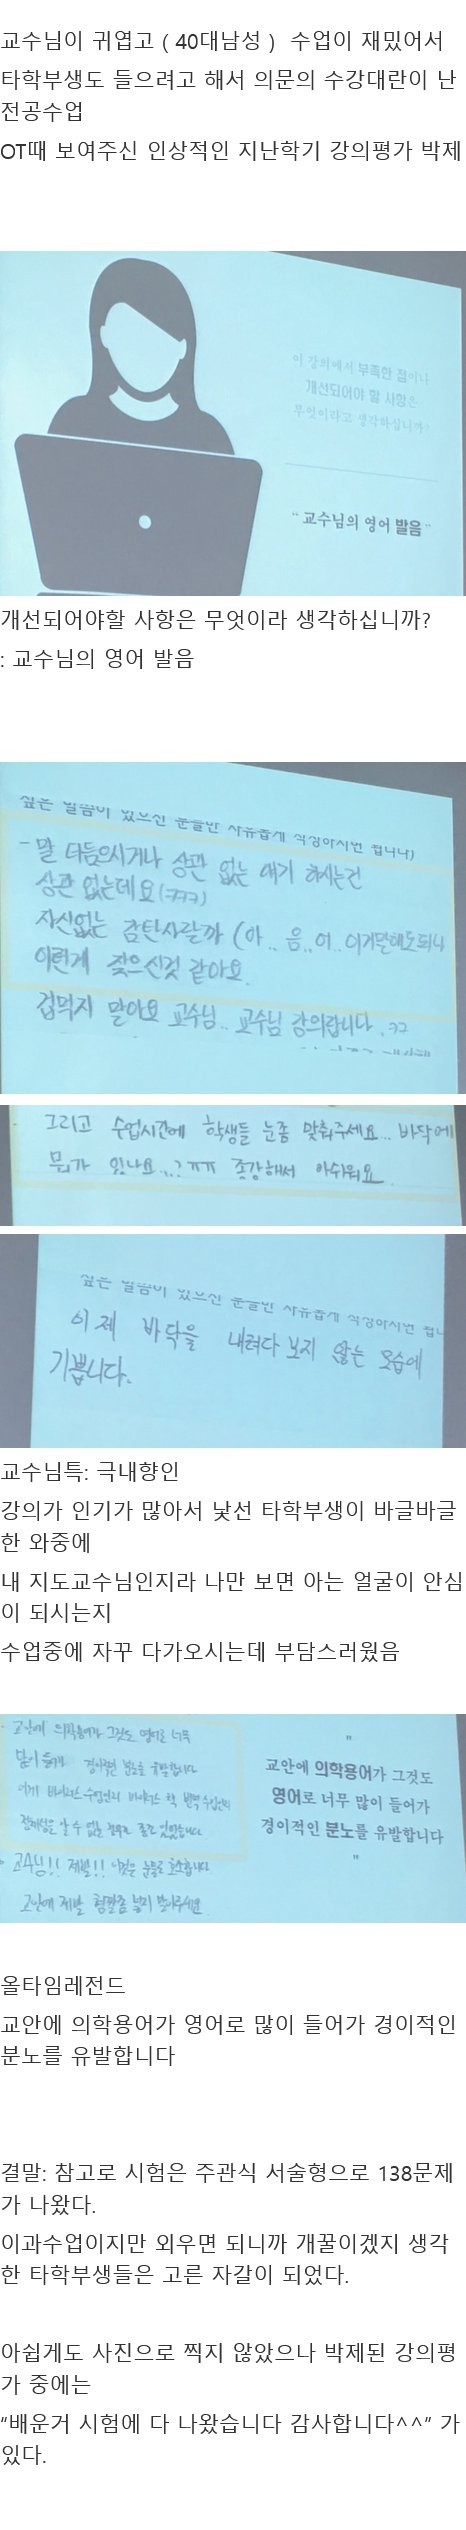 교수님이 귀엽고 ( 40대남성 )  수업이 재밌어서
타학부생도 들으려고 해서 의문의 수강대란이 난
전공수업
OT때 보여주신 인상적인 지난학기 강의평가 박제
이 강의에서 부족한 점이나
개선되어야 할 사항은
무엇이라고 생각하십니까?
" 교수님의 영어 발음 "
개선되어야할 사항은 무엇이라 생각하십니까?
: 교수님의 영어 발음
싶은 말씀이 있으신 분들만 자유롭게 작성하시면 됩니다)
- 말 더듬으시거나 상관 없는 얘기 하시는건
상관 없는데요(ㅋㅋㅋ)
자신없는 감탄사랄까 (아.. 음..어..이거말해도되나
이런게 잦으신것 같아요.
겁먹지 말아요 교수님.. 교수님 강의랍니다.ㅋㅋ
그리고 수업시간에 학생들 눈좀 맞춰주세요... 바닥에
뭐가 있나요...? ㅠㅠ 종강해서 아쉬워요.
싶은 말씀이 있으신 분들만 자유롭게 작성하시면 됩니
이제 바닥을 내려다 보지 않는 모습에
기쁩니다.
교수님특: 극내향인
강의가 인기가 많아서 낯선 타학부생이 바글바글
한 와중에
내 지도교수님인지라 나만 보면 아는 얼굴이 안심
이 되시는지
수업중에 자꾸 다가오시는데 부담스러웠음
교안에 의학용어가 그것도 영어로 너무
많이 들어가 경이적인 분노를 유발합니다
교수님!! 제발!!
교안에 제발
"
교안에 의학용어가 그것도
영어로 너무 많이 들어가
경이적인 분노를 유발합니다
"
올타임레전드
교안에 의학용어가 영어로 많이 들어가 경이적인
분노를 유발합니다
결말: 참고로 시험은 주관식 서술형으로 138문제
가 나왔다.
이과수업이지만 외우면 되니까 개꿀이겠지 생각
한 타학부생들은 고른 자갈이 되었다.
아쉽게도 사진으로 찍지 않았으나 박제된 강의평
가 중에는
“배운거 시험에 다 나왔습니다 감사합니다^^” 가
있다.